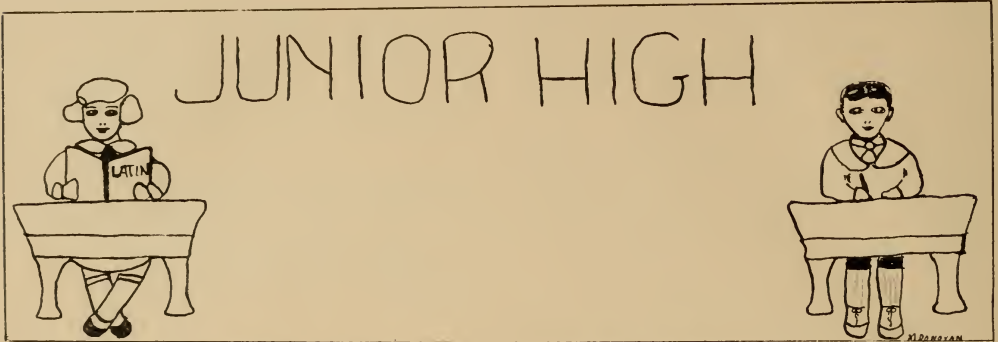 JUNIOR HIGH
LATIN
M. DONOVAN